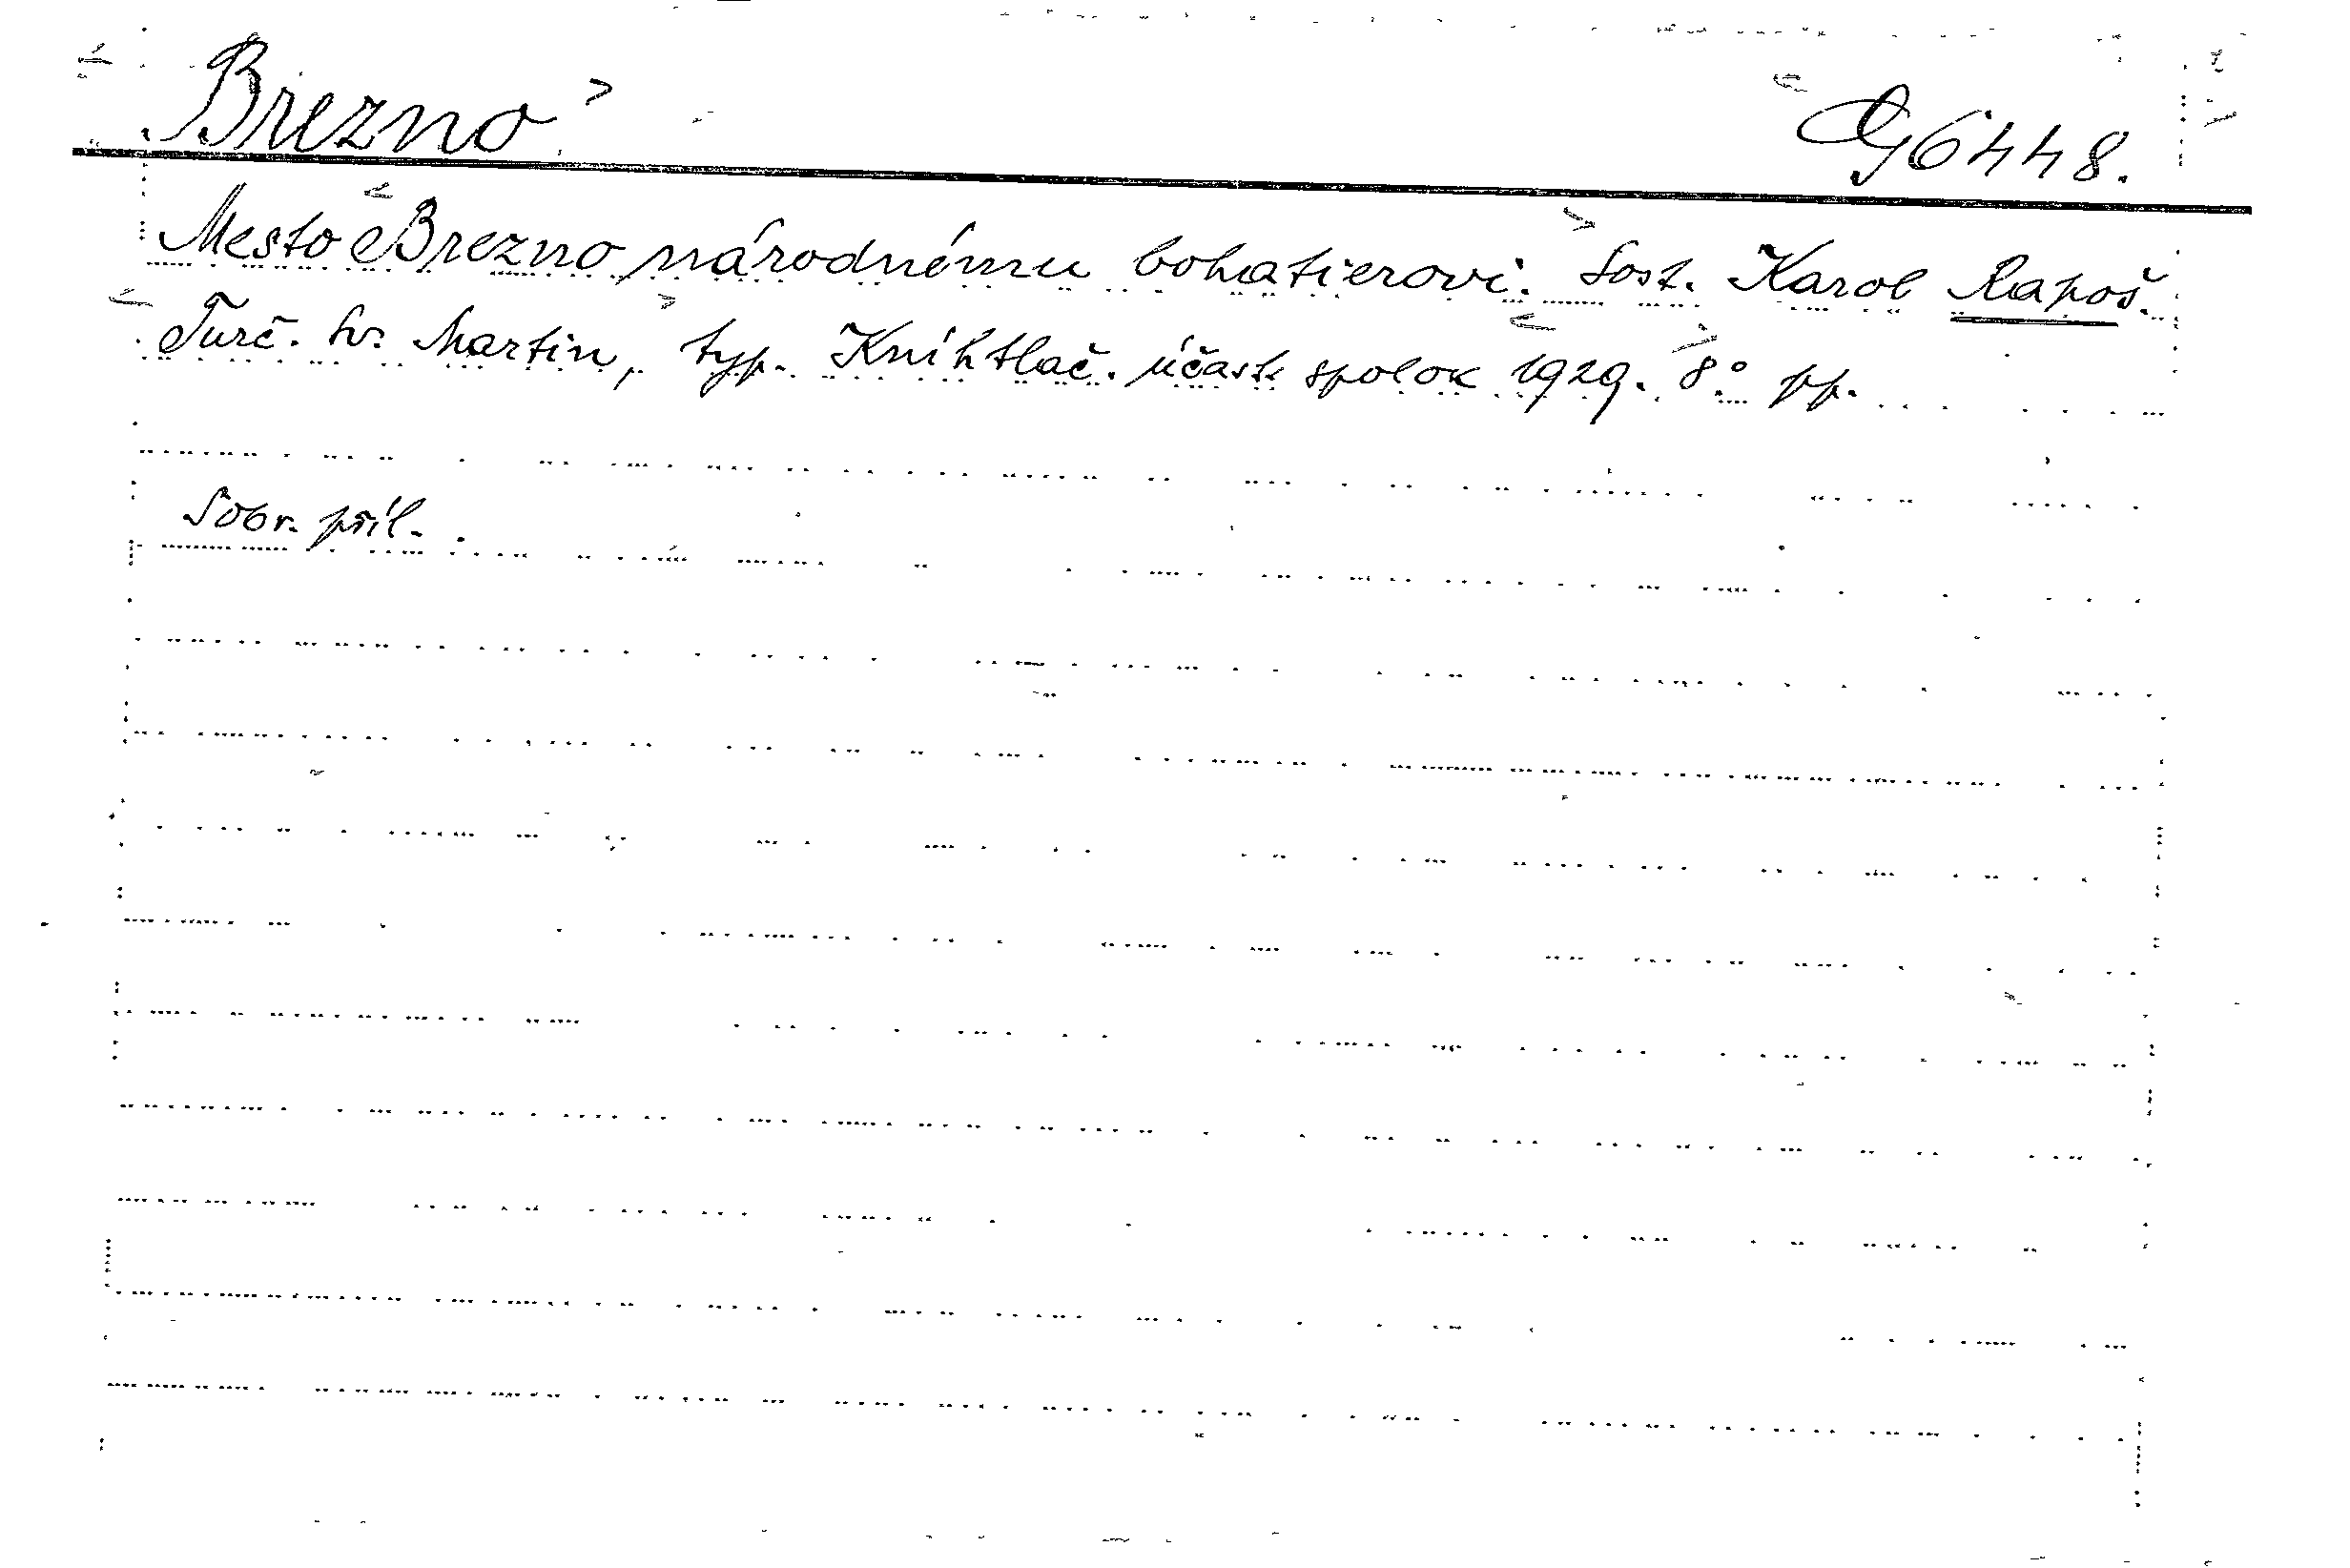 Brezno G 6448.
Mesto Brezno národnému bohatierovi. Sost. Karol Rapoš.
Turč. Sv. Martin, typ. Kníhtlač. účast. spolok 1929. 8° pp.
S obr. příl.